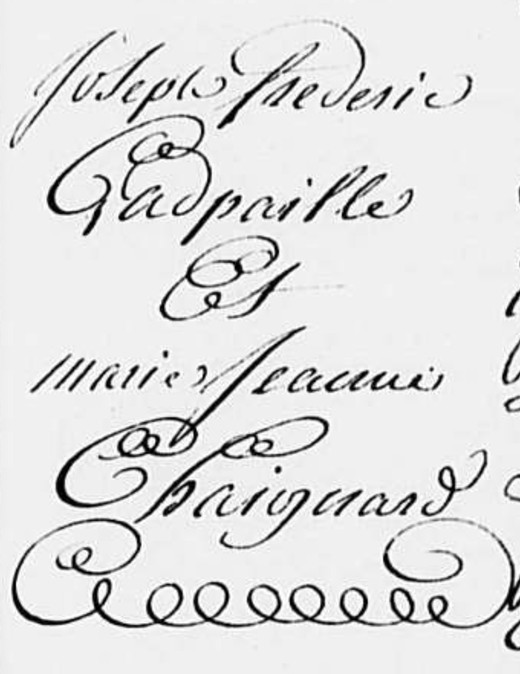 Joseph frederic
Gadpaille
Et
marie Jeanne
Chaignard